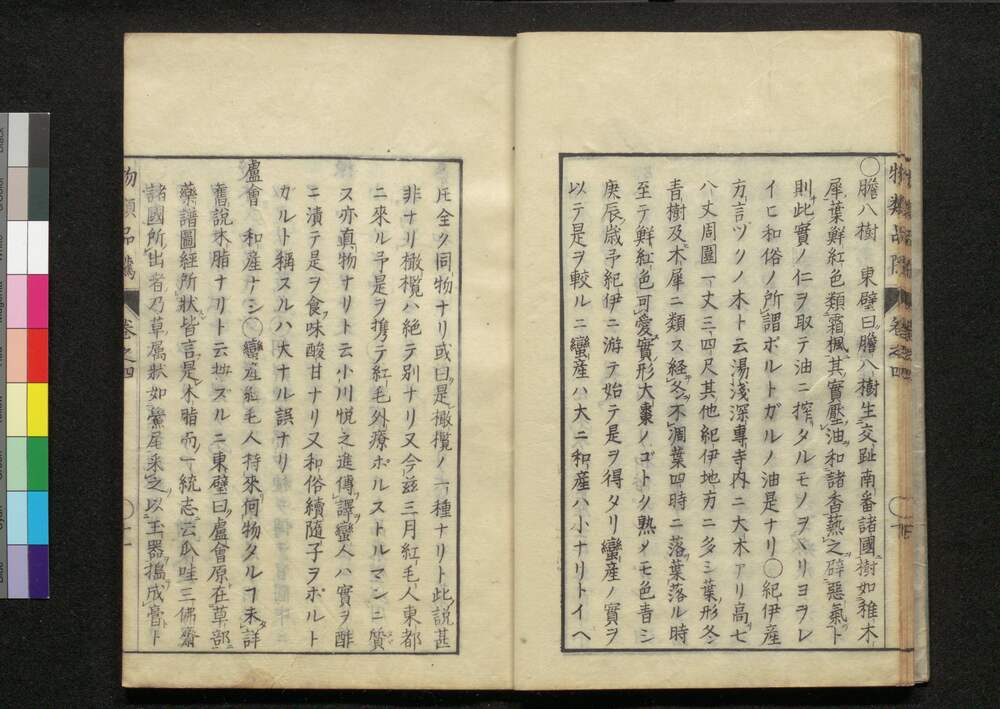 物類品隲 巻之四
○膽八樹 東璧曰膽八樹生交趾南番諸國樹如稚木
犀葉鮮紅色類霜楓其實壓油和諸香爇之辟惡氣ト
則此實ノ仁ヲ取テ油ニ搾タルモノヲヘリヨヲレ
イヒ和俗ノ所謂ポルトガルノ油是ナリ○紀伊産
方言ヅクノ木ト云湯淺深專寺内ニ大木アリ高七
八丈周圍一丈三四尺其他紀伊地方ニ多シ葉形冬
青樹及木犀ニ類ス經冬不凋葉四時ニ落葉落ル時
至テ鮮紅色可愛實形大棗ノゴトク熟メモ色青シ
庚辰歳予紀伊ニ游テ始テ是ヲ得タリ蠻産ノ實ヲ
以テ是ヲ較ルニ蠻産ハ大ニ和産ハ小ナリトイヘ
𪜈全ク同物ナリ或曰是橄欖ノ一種ナリト此説甚
非ナリ橄欖ハ絶テ別ナリ又今茲三月紅毛人東都
ニ來ル予是ヲ携テ紅毛外療ポルストルマンニ質
ス亦眞物ナリト云小川悦之進傳譯蠻人ハ實ヲ酢
ニ漬テ是ヲ食味酸甘ナリ又和俗續隨子ヲポルト
ガルト稱スルハ大ナル誤ナリ
盧會 和産ナシ○蠻産紅毛人持來何物タルヿ未詳
舊説木脂ナリト云按ズルニ東璧曰盧會原在草部
藥譜圖經所狀皆言是木脂而一統志云爪哇三佛齋
諸國所出者乃草屬狀如鱟尾采之以玉器搗成膏ト
物類品隲 巻之四